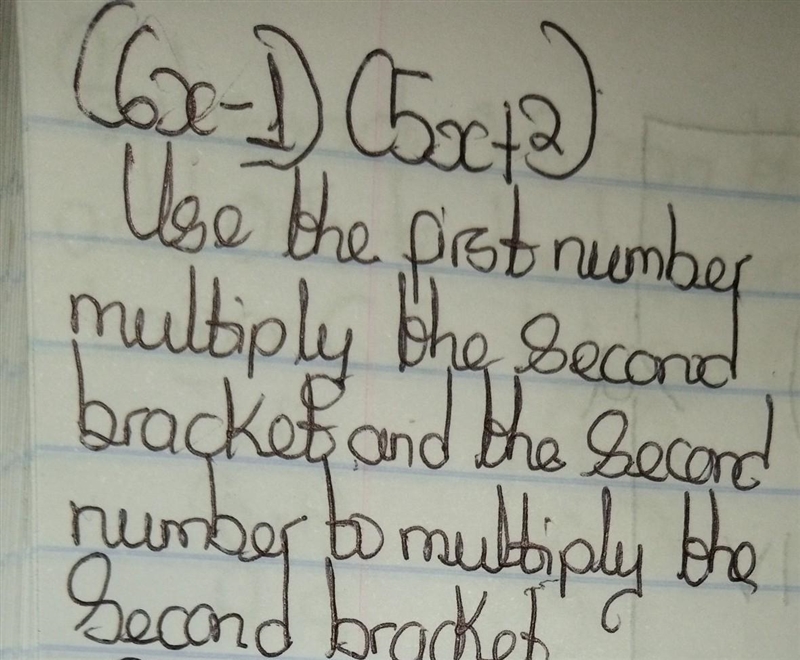 (6x-1) (5x+2)
Use the first number
multiply the second
bracket and the second
number to multiply the
second bracket